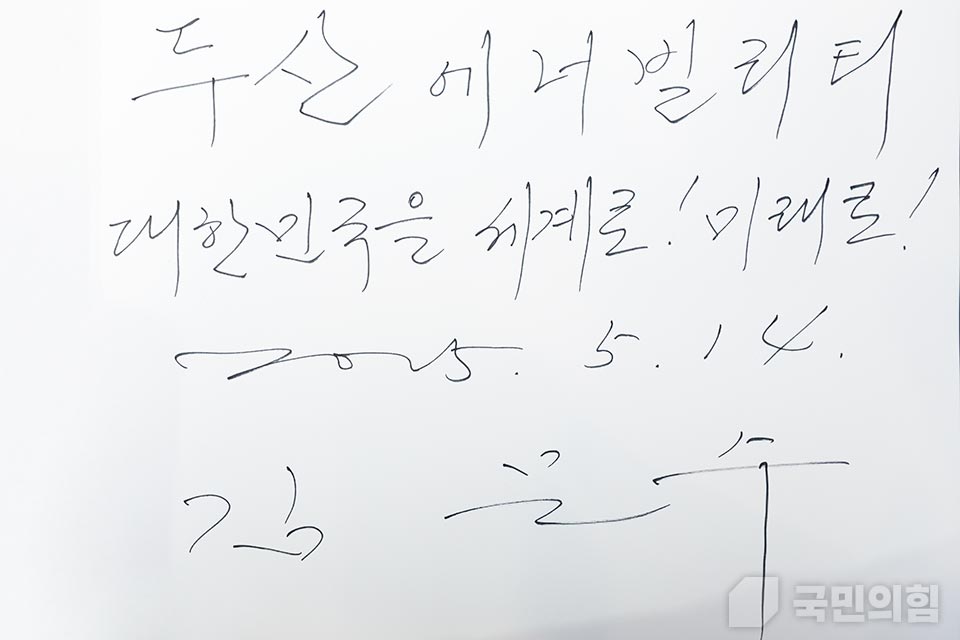 두산 에너빌리티
대한민국을 세계로! 미래로!
2025. 5. 14.
김 문 수
국민의힘